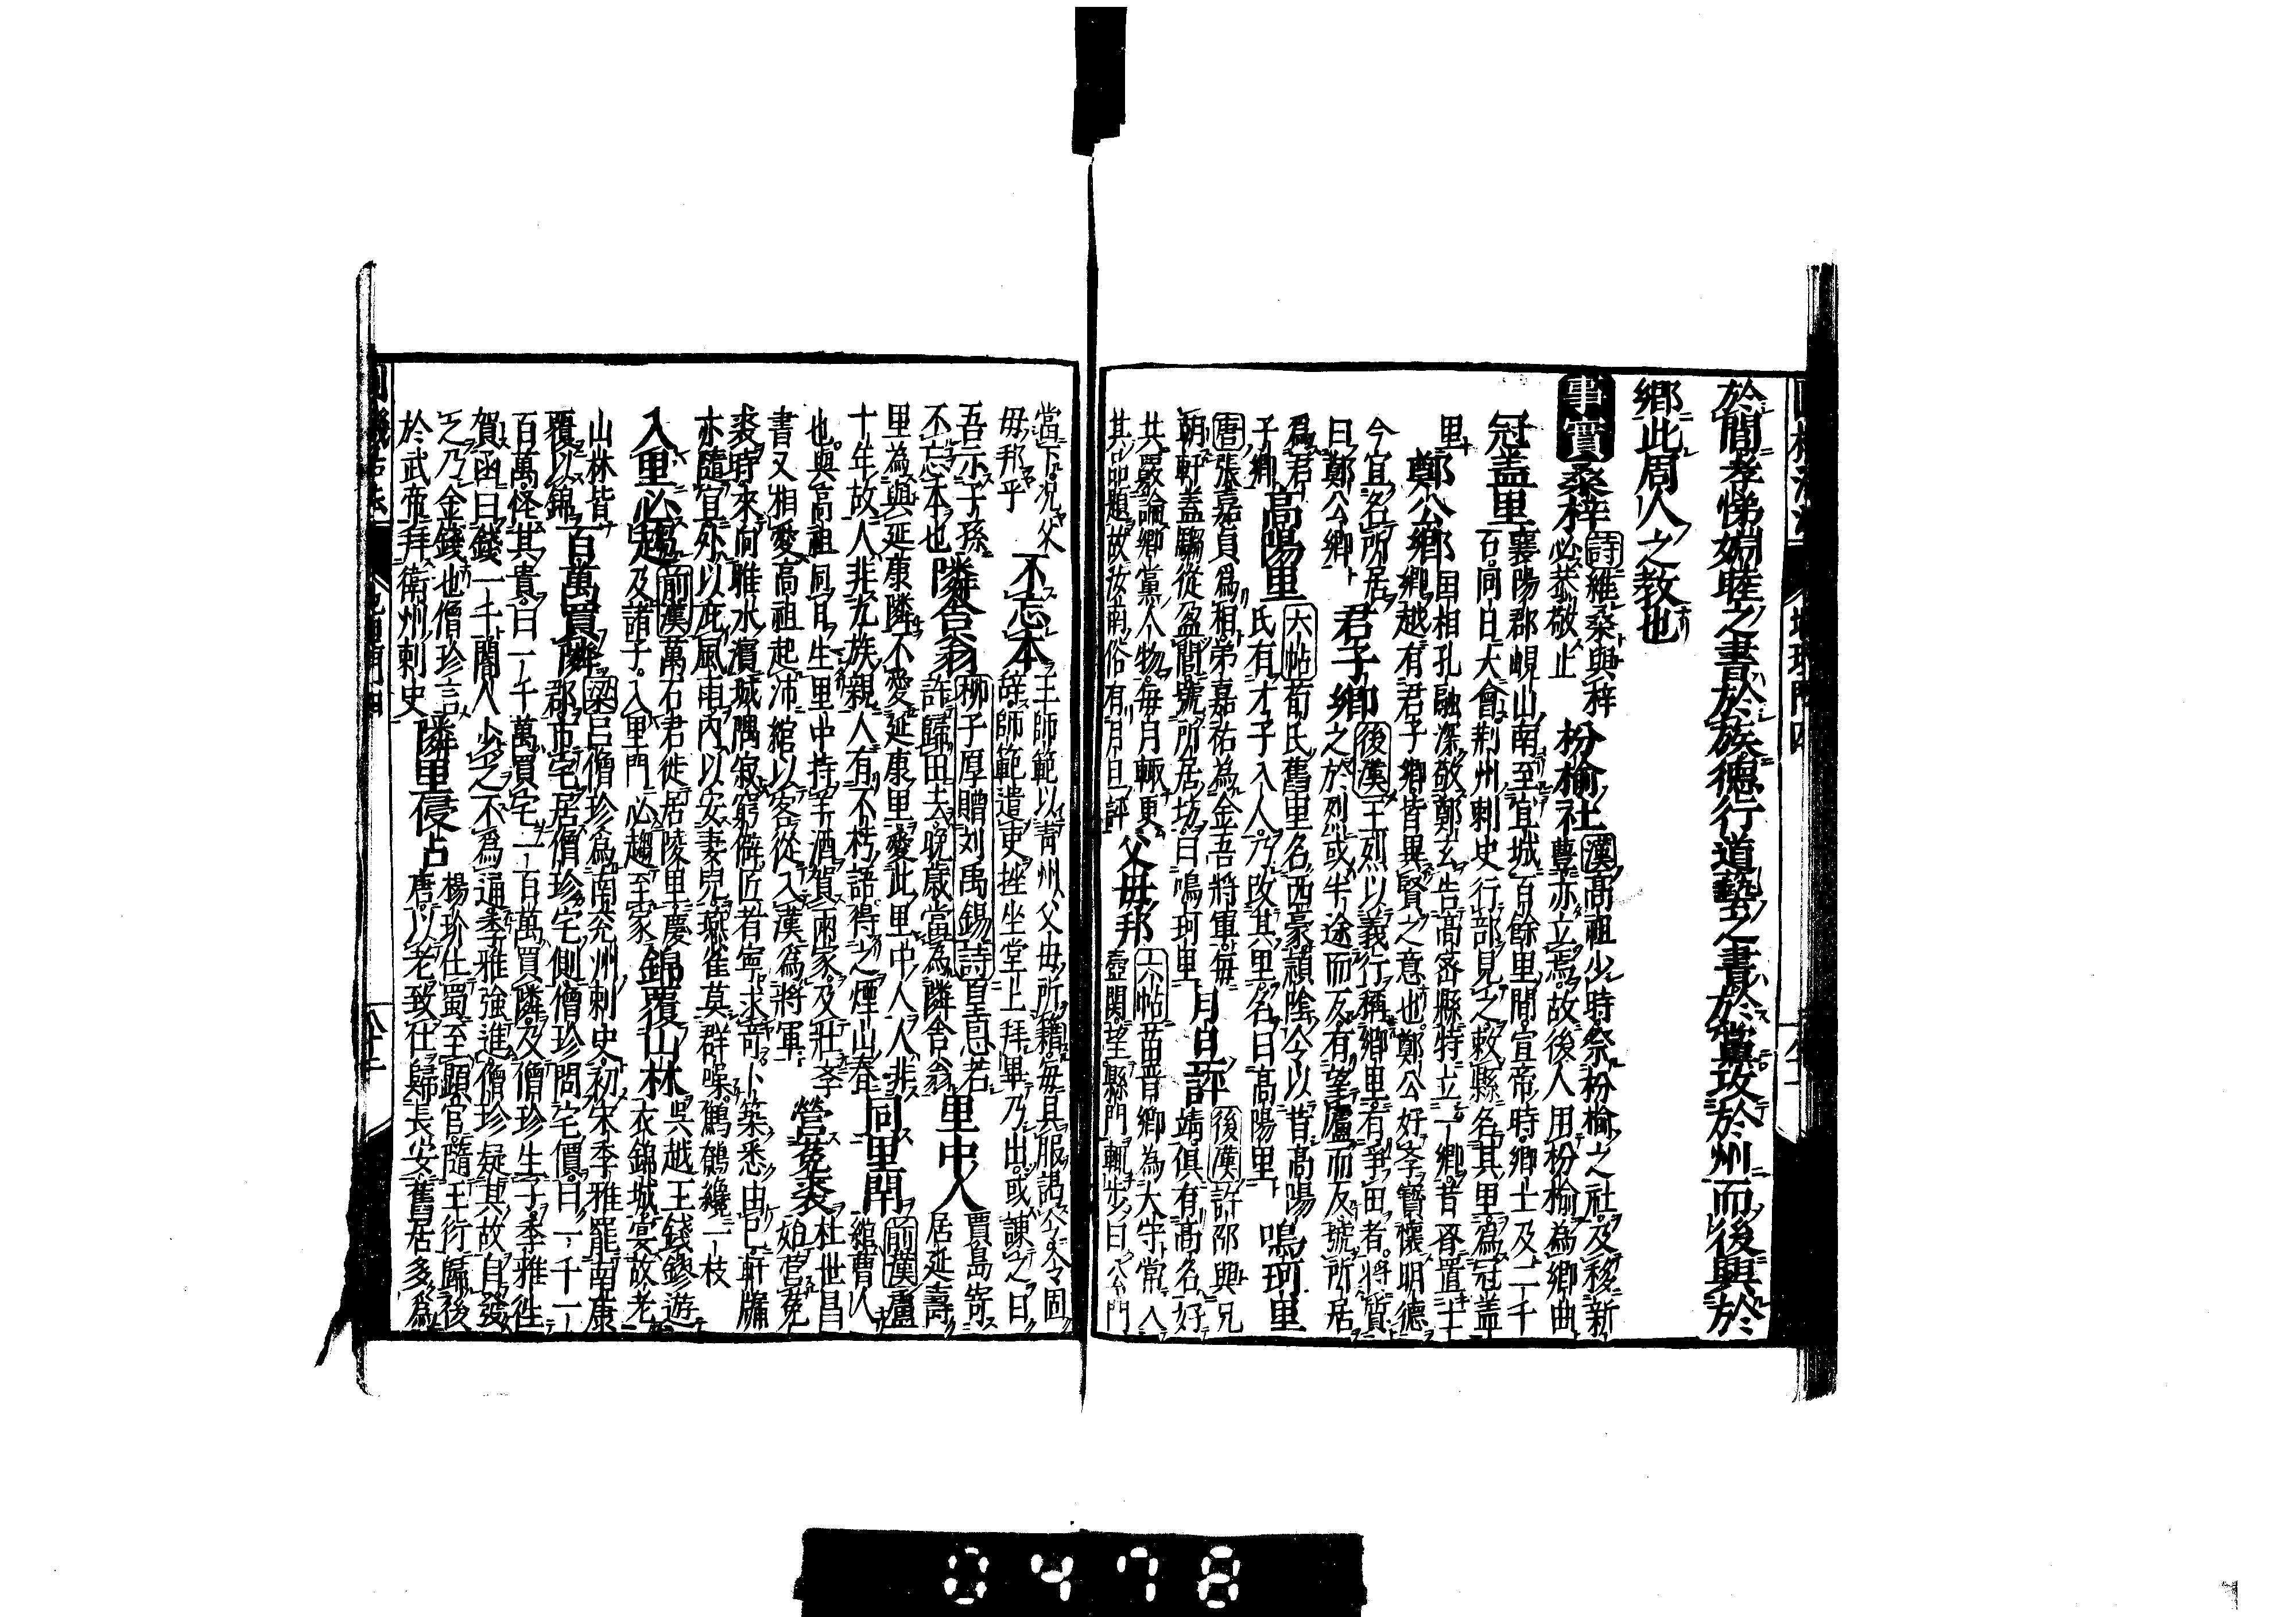 於閭孝悌婣睦之書於族德行道藝之書於黨攷於州而後興於
鄉此周人之教也
事實
桑梓
詩維桑與梓
必恭敬止
枌榆社
漢高祖少時祭枌榆之社及移新
豊亦立焉故後人用枌榆為鄉曲
冠盖里
襄陽郡峴山南至宜城百餘里間宣帝時鄉士及二千
石同日大會荆州刺史行部見之敕縣名其里為冠盖
里
鄭公鄉
国相孔融深敬鄭玄告高密縣特立一鄉昔齊置士
鄉越有君子鄉皆異賢之意也鄭公好孝賢懷明德
今宜名所居
曰鄭公鄉
君子鄉
後漢王烈以義行稱鄉里有爭田者將質
之於烈或半途而反有望廬而反號所居
為君
子鄉
高陽里
六帖荀氏舊里名西豪頴陰令以昔高陽
氏有才子八人乃改其里名曰高陽里
鳴珂里
唐張嘉貞為相弟嘉祐為金吾將軍每
朝軒盖騶從盈閭號所居坊曰鳴珂里
月旦評
後漢許邵與兄
靖俱有高名好
共覈論鄉黨人物每月輙更
其品題故汝南俗有月旦評
父毋邦
六帖苗晋鄉為大守常入
壺関望縣門輒步曰公門
當下况父
毋邦乎
不忘本
王師範以青州父毋所籍每其服謁令固
辞師範遣吏挫坐堂上拜畢乃出或諫之曰
吾示子孫
不忘本也
隣舍翁
柳子厚贈刘禹錫詩皇恩若
許歸田去晚歲當為隣舍翁
里中人
賈島寄
居延壽
里為與延康隣不愛延康里愛此里中人人非
十年故人非九族親人有不朽語得之煙山春
同里閈
前漢盧
綰曹人
也與高祖同日生里中持羊酒賀兩家及壯孝
書又相愛高祖起沛綰以客從入漢為將軍
營菟裘
杜世昌
始營菟
裘時來向睢水濱城隅寂窮僻匠者寧求奇卜築悉由已軒牖
亦隨宜外以庇風雨內以安妻兒燕雀莫群噪鷦鷯纔一枝
入里必趨
前漢萬石君徙居陵里慶
及諸子入里門必趨至家
錦覆山林
呉越王錢鏐遊
衣錦城宴故老
山林皆
覆以錦
百萬買隣
梁吕僧珍為南兖州刺史初宋季雅罷南康
郡市宅居僧珍宅側僧珍問宅價曰一千一
百萬怪其貴曰一千萬買宅一百萬買隣及僧珍生子季雅往
賀函曰錢一千閽人少之不為通季雅強進僧珍疑其故自發
乏乃金錢也僧珍言
於武帝拜衛州刺史
隣里侵占
楊玢仕蜀至顕官隨王衍歸後
唐以老致仕歸長安舊居多為
0478